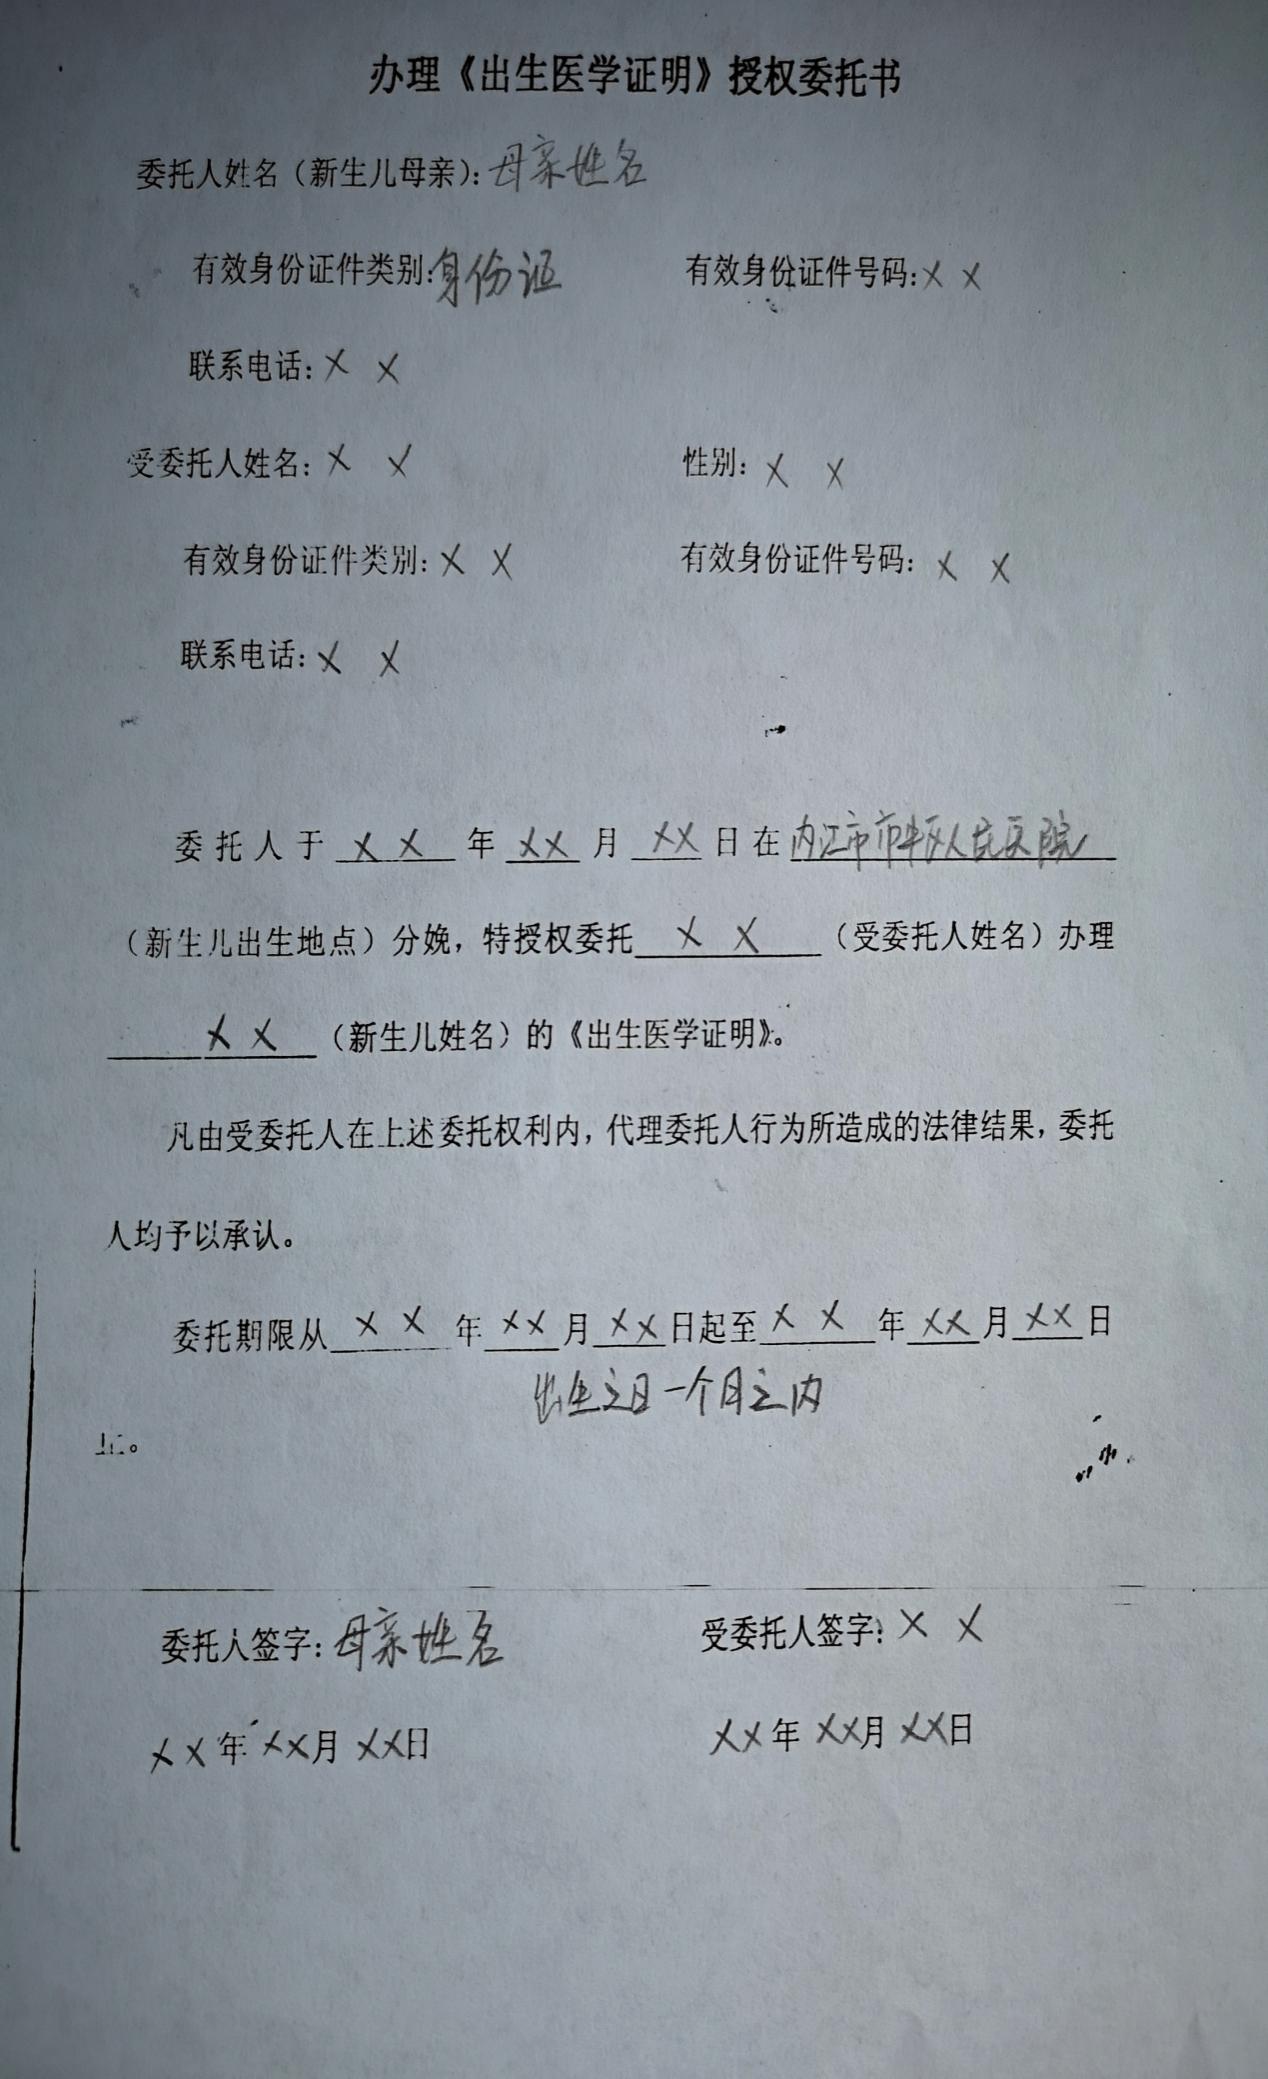 办理《出生医学证明》授权委托书
委托人姓名（新生儿母亲）：母亲姓名
有效身份证件类别：身份证 有效身份证件号码：X X
联系电话：X X
受委托人姓名：X X 性别：X X
有效身份证件类别：X X 有效身份证件号码：X X
联系电话：X X
委托人于 X X 年 XX 月 XX 日在 内江市市中区人民医院
（新生儿出生地点）分娩，特授权委托 X X （受委托人姓名）办理
X X （新生儿姓名）的《出生医学证明》。
凡由受委托人在上述委托权利内，代理委托人行为所造成的法律结果，委托
人均予以承认。
委托期限从 X X 年 XX 月 XX 日起至 X X 年 XX 月 XX 日
出生之日一个月之内
止。
委托人签字：母亲姓名 受委托人签字：X X
X X 年 XX月 XX日 XX年 XX月 XX日